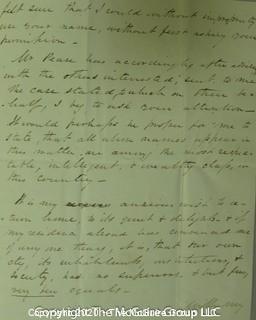 felt sure that I could without impropriety
use your name, without first asking your
permission —
Mr Pease has accordingly after advising
with the others interested, sent to me
the case stated, which on their be-
half, I beg to ask your attention —
It would perhaps be proper for me to
state, that all whose names appear in
this matter, are among the most respec-
table, intelligent, & wealthy class, in
this country —
It is my anxious wish to
return home, to its quiet & delights & if
my residence abroad has convinced me
of any one thing, it is, that our own
city, its inhabitants, institutions, &
society, has no superiors & but few,
very few equals —
Copyright 2020 The McGuire Group LLC